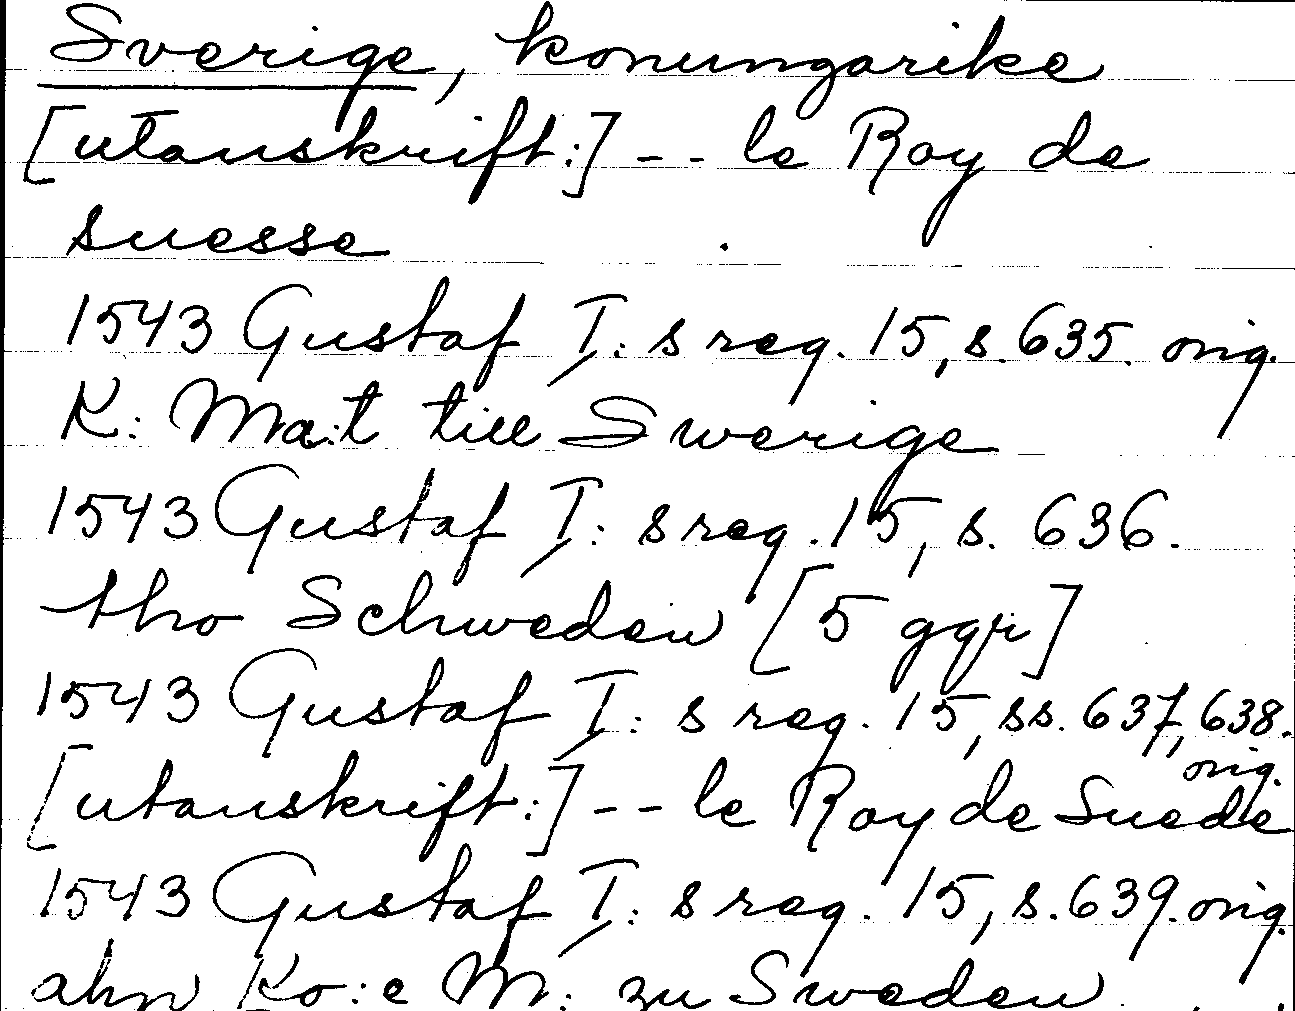 Sverige, konungarike
[utanskrift:] -- le Roy de
suesse
1543 Gustaf I: s reg. 15, s. 635. orig.
K: Ma:t till Swerige
1543 Gustaf I: s reg. 15, s. 636.
tho Schweden [5 ggr]
1543 Gustaf I: s reg. 15, ss. 637, 638.
orig.
[utanskrift:] -- le Roy de Suede
1543 Gustaf I: s reg. 15, s. 639. orig.
ahn Ko:e M: zu Sweden